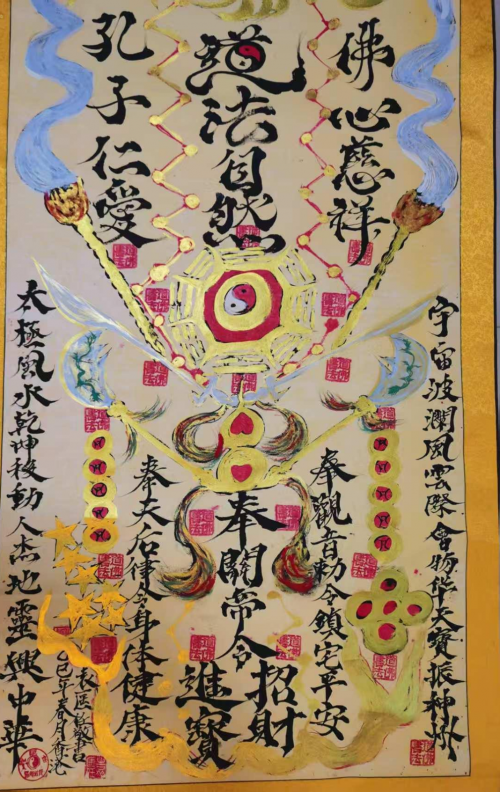 佛心慈祥
道法自然
孔子仁愛
宇宙波瀾風雲際會物華天寶振神州
奉觀音勅令鎖宅平安
奉關帝令
招財
進寶
奉天后律令身体健康
太極風水乾坤移動人杰地靈興中華
敬書
乙巳年春月香港